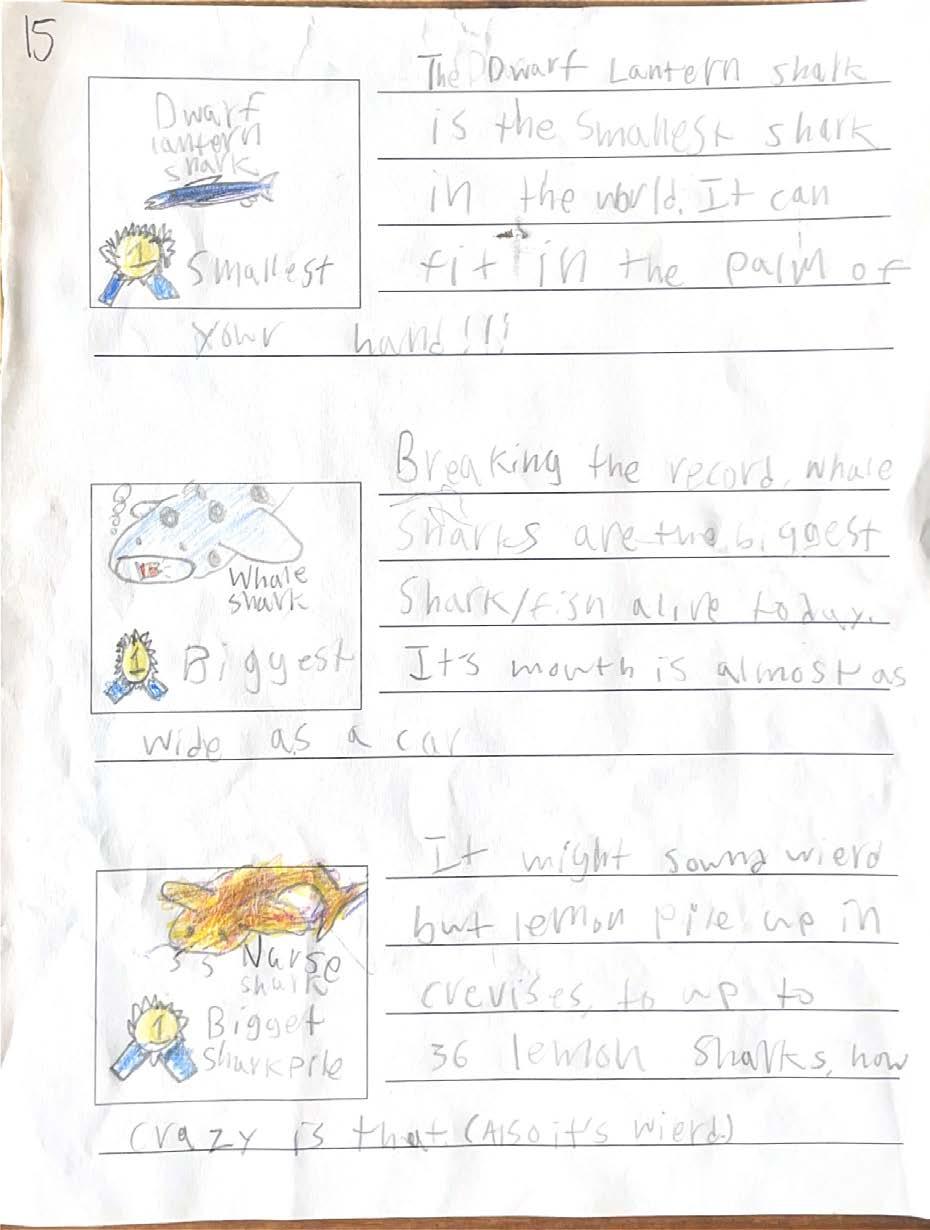 15
Dwarf
lantern
shark
1
Smallest
The Dwarf Lantern shark
is the smallest shark
in the world. It can
fit in the palm of
your hand!!!
Whale
shark
1
Biggest
Breaking the record, whale
Sharks are the biggest
Shark/fish alive today.
It's mouth is almost as
wide as a car
Nurse
shark
1
Bigget
Sharkpile
It might sound wierd
but lemon pile up in
crevises, to up to
36 lemon Sharks, how
crazy is that (Also it's wierd.)